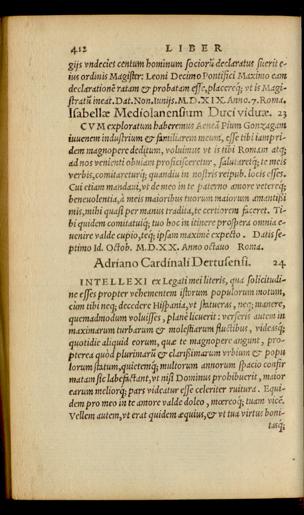 412 LIBER
gijs vndecies centum hominum sociorũ declaratus fuerit e-
ius ordinis Magister: Leoni Decimo Pontifici Maximo eam
declarationẽ ratam & probatam esse, placereq; vt is Magi-
stratũ ineat. Dat. Non. Iunijs. M.D.XIX. Anno. 7. Roma.
Isabellæ Mediolanensium Duci viduæ. 23
CVM exploratum haberemus Aeneã Pium Gonzagam
iuuenem industrium & familiarem meum, esse tibi iampri-
dem magnopere deditum, voluimus vt is tibi Romam atq;
ad nos venienti obuiam proficisceretur, salutaretq; te meis
verbis, comitareturq; quandiu in nostris reipub. locis esses.
Cui etiam mandaui, vt de meo in te paterno amore vetereq;
beneuolentia, à meis maioribus tuorum maiorum amantissi
mis, mihi quasi per manus tradita, te certiorem faceret. Ti-
bi quidem comitatuiq; tuo hoc in itinere prospera omnia e-
uenire valde cupio, teq; ipsam maximè expecto. Datis se-
ptimo Id. Octob. M.D.XX. Anno octauo Roma.
Adriano Cardinali Dertusensi. 24
INTELLEXI ex Legati mei literis, qua solicitudi-
ne esses propter vehementem istorum populorum motum,
cùm tibi neq; decedere Hispania, vt statueras, neq; manere,
quemadmodum voluisses, planè licuerit: verseris autem in
maximarum turbarum & molestiarum fluctibus, videasq;
quotidie aliquid eorum, quæ te magnopere angunt, pro-
pterea quòd plurimarũ & clarissimarum vrbium & popu
lorum statum, quietemq; multorum annorum spacio confir
matam sic labefactant, vt nisi Dominus prohibuerit, maior
earum meliorq; pars videatur esse celeriter ruitura. Equi-
dem pro meo in te amore valde doleo, mœreoq; tuam vicẽ.
Vellem autem, vt erat quidem æquius, & vt tua virtus boni-
tasq;